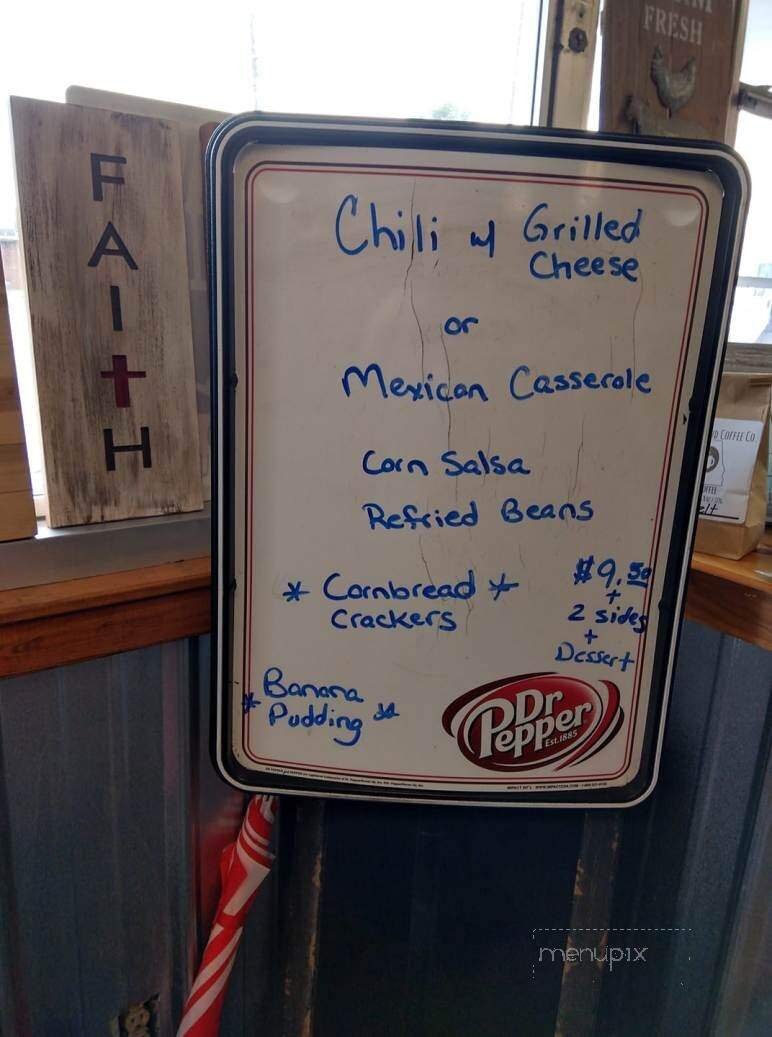 FRESH
FAITH
Chili w/ Grilled
Cheese
or
Mexican Casserole
Corn Salsa
Refried Beans
* Cornbread *
Crackers
$9.50
+
2 sides
+
Dessert
* Banana
Pudding *
Dr
Pepper
Est.1885
COFFEE CO
menupix